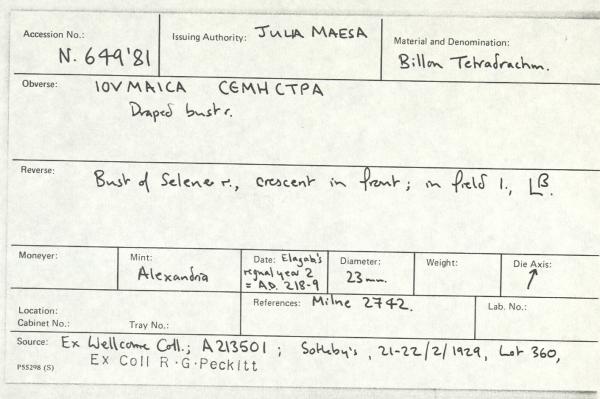 Accession No.: N. 649'81
Issuing Authority: JULIA MAESA
Material and Denomination: Billon Tetradrachm.
Obverse: IOVMAICA CEMHCTPA
Draped bust r.
Reverse: Bust of Selene r., crescent in front; in field l., LB.
Moneyer:
Mint: Alexandria
Date: Elagab's regnal year 2 = A.D. 218-9
Diameter: 23mm.
Weight:
Die Axis: ↑
Location:
Cabinet No.: Tray No.:
References: Milne 2742.
Lab. No.:
Source: Ex Wellcome Coll.; A213501; Sotheby's, 21-22/2/1929, Lot 360,
Ex Coll R.G.Peckitt
P55298 (S)